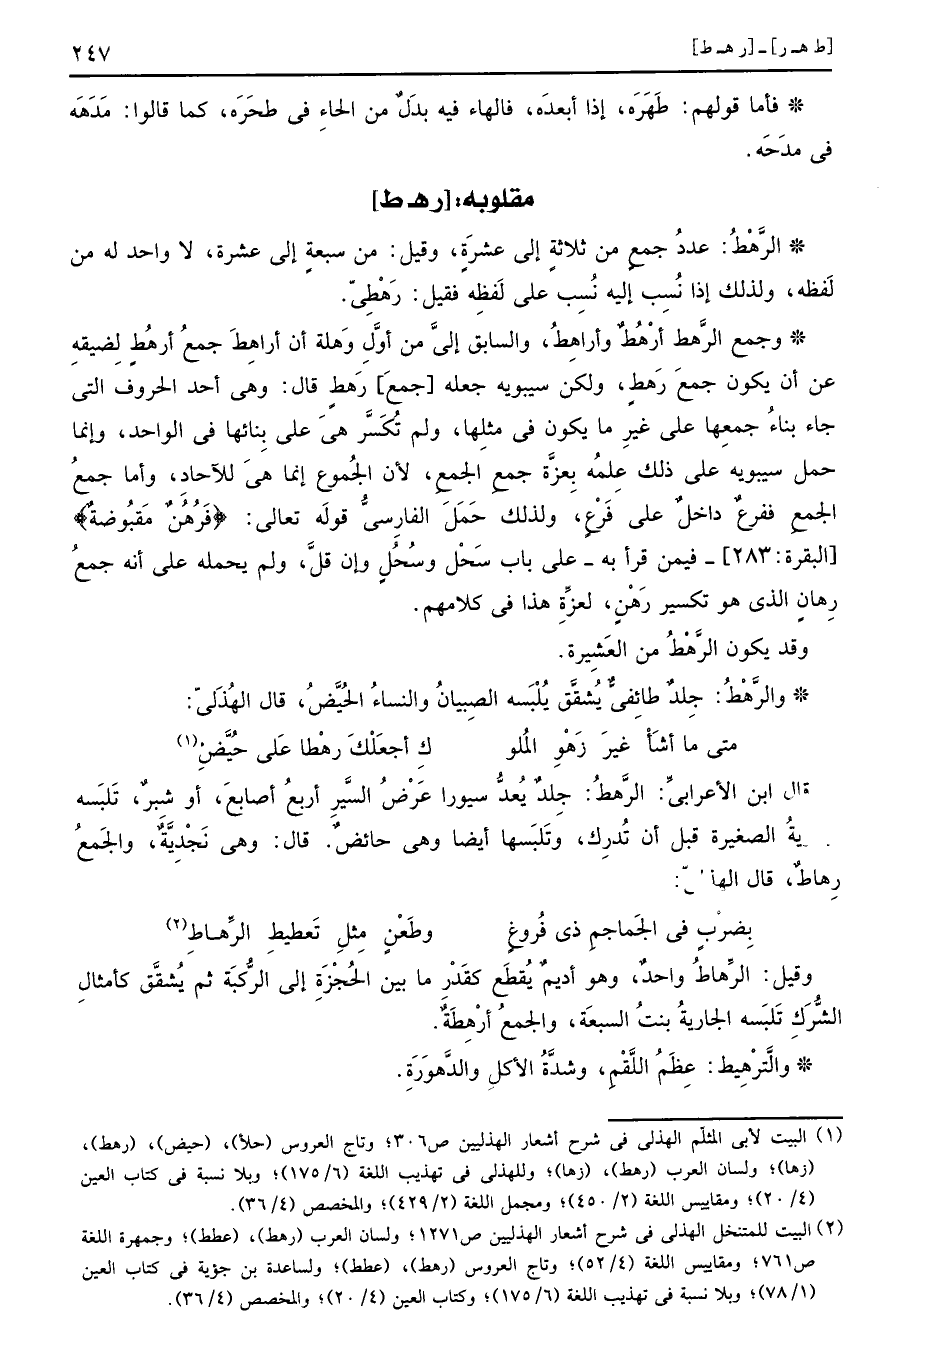 [ط هـ ر] ـ [ر هـ ط] ٢٤٧
* فأما قولهم: طَهَرَه، إذا أبعدَه، فالهاء فيه بدَلٌ من الحاءِ فى طحَرَه، كما قالوا: مَدَهَه
فى مدَحَه.
مقلوبه: [ر هـ ط]
* الرَّهْطُ: عددُ جمعٍ من ثلاثةٍ إلى عشرَةٍ، وقيل: من سبعةٍ إلى عشرة، لا واحد له من
لَفظه، ولذلك إذا نُسِب إليه نُسِب على لَفظِه فقيل: رَهْطِىّ.
* وجمع الرَّهط أرْهُطٌ وأراهِطُ، والسابق إلىَّ من أولَّ وَهلة أن أراهِطَ جمعُ أرهُطٍ لِضيقِه
عن أن يكون جمعَ رَهطٍ، ولكن سيبويه جعله [جمعَ] رَهطٍ قال: وهى أحد الحروف التى
جاء بناءُ جمعِها على غيرِ ما يكون فى مثلِها، ولم تُكَسَّر هىَ على بِنائها فى الواحد، وإنما
حمل سيبويه على ذلك عِلمُه بِعزَّة جمعِ الجمعِ، لأن الجُموع إنما هىَ للآحادِ، وأما جمعُ
الجمعِ ففرعٌ داخلٌ على فَرْعٍ، ولذلك حَمَلَ الفارسىُّ قولَه تعالى: ﴿فَرُهُنٌ مَقبُوضةٌ﴾
[البقرة: ٢٨٣] ـ فيمن قرأ به ـ على باب سَحْل وسُحُلٍ وإن قلَّ، ولم يحمله على أنه جمعُ
رِهانٍ الذى هو تكسير رَهْنٍ، لعزِّةِ هذا فى كلامهم.
وقد يكون الرَّهْطُ من العَشيرة.
* والرَّهْطُ: جلدٌ طائفىٌّ يُشقَّق يُلْبَسه الصبيانُ والنساءُ الحُيَّضُ، قال الهُذَلىّ:
متى ما أشَأْ غيرَ زَهْوِ المُلو ك أجعَلْكَ رهْطا عَلَى حُيَّضِ(١)
قال ابن الأعرابىِّ: الرَّهطُ: جلدٌ يُعدُّ سيورا عَرْضُ السَّيرِ أربعُ أصابعَ، أو شِبرٌ، تَلبَسه
الصغيرة قبل أن تُدرِك، وتَلبَسها أيضا وهى حائضٌ. قال: وهى نَجْدِيَّةٌ، والجَمعُ
رِهاطٌ، قال
بِضرْبٍ فى الجَماجمِ ذى فُروغٍ وطَعْنٍ مِثلِ تَعطيطِ الرِّهـاطِ(٢)
وقيل: الرِّهاطُ واحدٌ، وهو أديمٌ يُقطَع كقَدْرِ ما بين الحُجْزَةِ إلى الرُّكبَة ثم يُشقَّق كأمثالِ
الشُّرُكِ تَلبَسه الجاريةُ بنتُ السبعَة، والجمعُ أرْهِطَةٌ.
* والَّترْهيط: عِظَمُ اللَّقْمِ، وشدَّةُ الأكلِ والدَّهوَرَةِ.
(١) البيت لأبى المثلّم الهذلى فى شرح أشعار الهذليين ص٣٠٦؛ وتاج العروس (حلأ)، (حيض)، (رهط)،
(زها)؛ ولسان العرب (رهط)، (زها)؛ وللهذلى فى تهذيب اللغة (٦/ ١٧٥)؛ وبلا نسبة فى كتاب العين
(٤/ ٢٠)؛ ومقاييس اللغة (٢/ ٤٥٠)؛ ومجمل اللغة (٢/ ٤٢٩)؛ والمخصص (٤/ ٣٦).
(٢) البيت للمتنخل الهذلى فى شرح أشعار الهذليين ص١٢٧١؛ ولسان العرب (رهط)، (عطط)؛ وجمهرة اللغة
ص٧٦١؛ ومقاييس اللغة (٤/ ٥٢)؛ وتاج العروس (رهط)، (عطط)؛ ولساعدة بن جؤية فى كتاب العين
(١/ ٧٨)؛ وبلا نسبة فى تهذيب اللغة (٦/ ١٧٥)؛ وكتاب العين (٤/ ٢٠)؛ والمخصص (٤/ ٣٦).